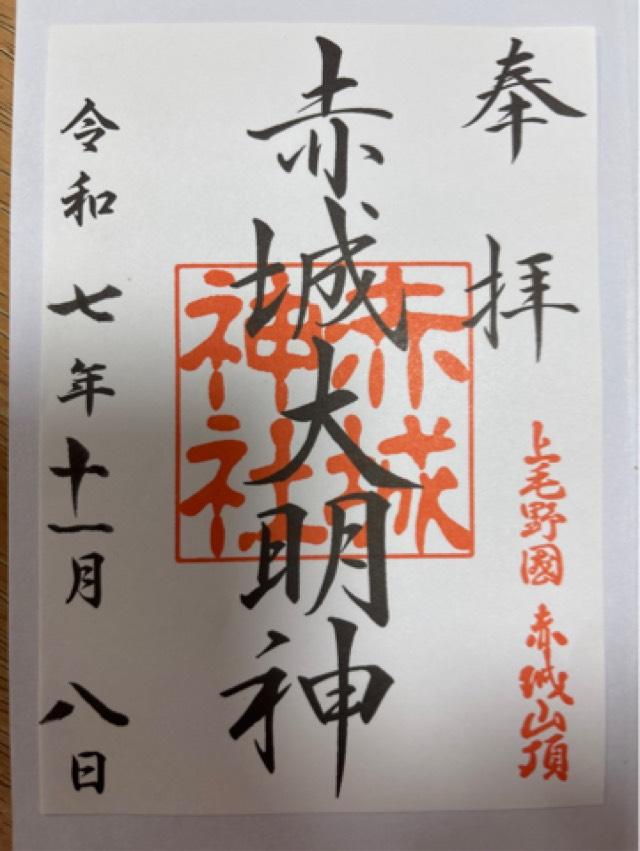 奉拝
上毛野國 赤城山頂
赤城大明神
赤城
神社
令和七年十一月八日